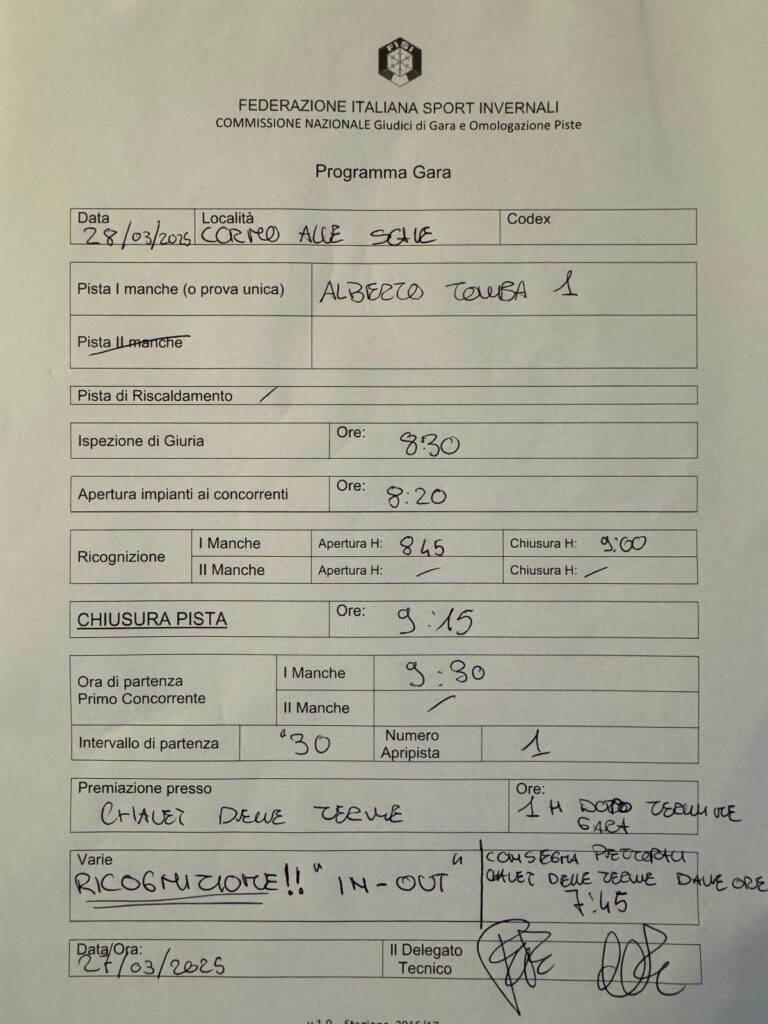 FISI
FEDERAZIONE ITALIANA SPORT INVERNALI
COMMISSIONE NAZIONALE Giudici di Gara e Omologazione Piste
Programma Gara
Data 28/03/2025 Località CORNO ALLE SCALE Codex
Pista I manche (o prova unica) ALBERTO TOMBA 1
Pista II manche
Pista di Riscaldamento /
Ispezione di Giuria Ore: 8:30
Apertura impianti ai concorrenti Ore: 8:20
Ricognizione I Manche Apertura H: 845 Chiusura H: 9:00
II Manche Apertura H: / Chiusura H: /
CHIUSURA PISTA Ore: 9:15
Ora di partenza Primo Concorrente I Manche 9:30
II Manche /
Intervallo di partenza "30 Numero Apripista 1
Premiazione presso Ore:
CHALET DELLE TERME 1 H DOPO TERMINE
GARA
Varie
RICOGNIZIONE!! "IN-OUT"
CONSEGNA PETTORALI
CHALET DELLE TERME DALLE ORE
7:45
Data/Ora: 27/03/2025 Il Delegato Tecnico